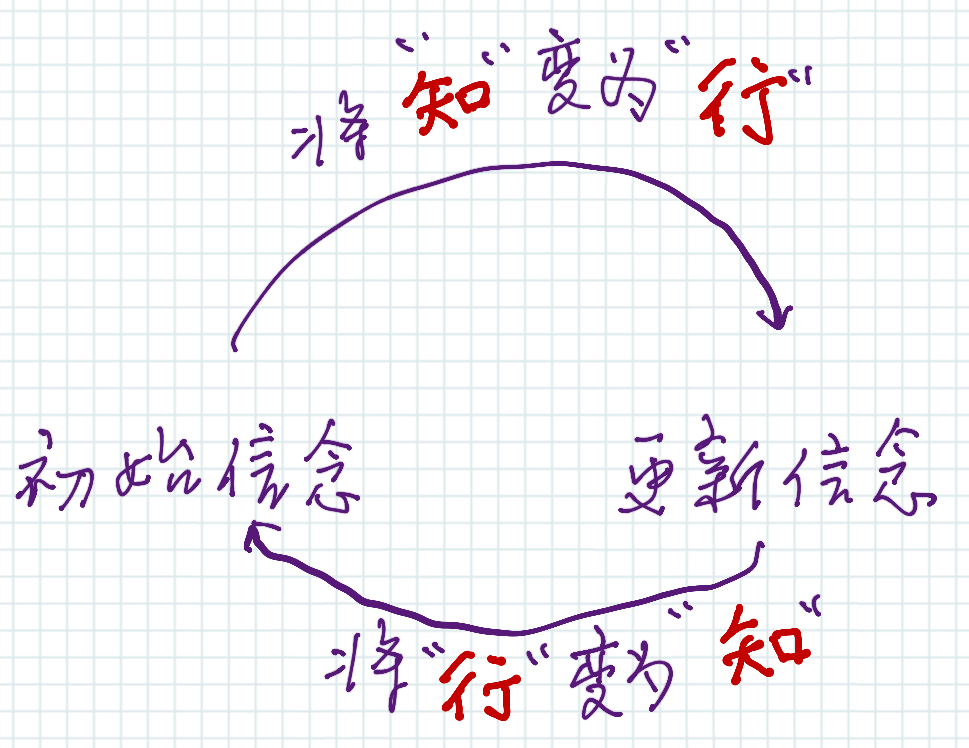 将“知“变为“行“
初始信念
更新信念
将“行“变为“知“